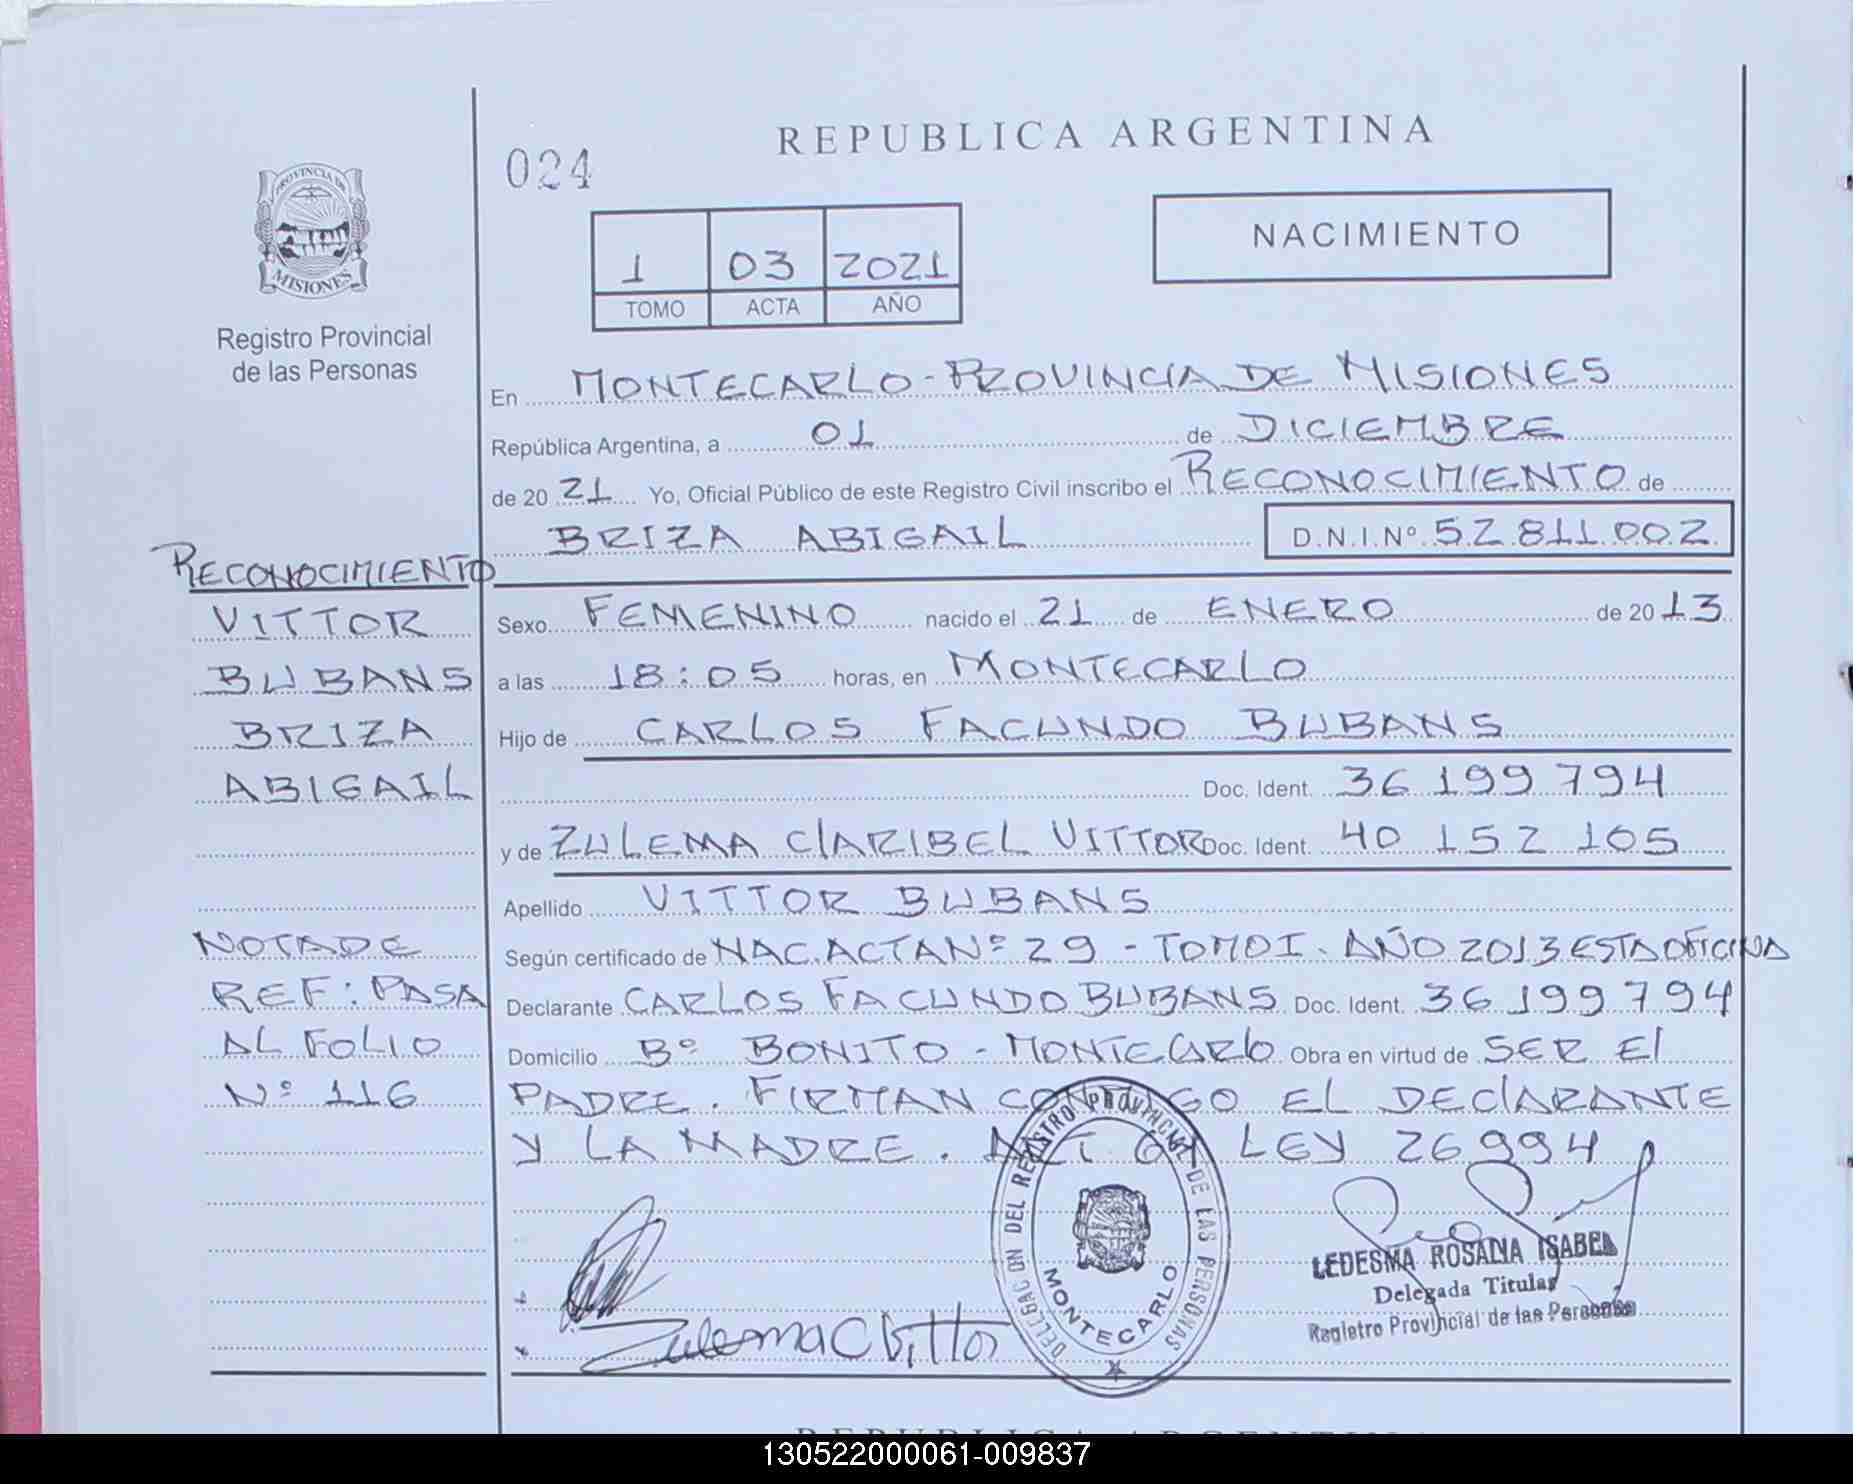 REPUBLICA ARGENTINA
024
NACIMIENTO
1 03 2021
TOMO ACTA AÑO
PROVINCIA DE
MISIONES
Registro Provincial
de las Personas
En MONTECARLO - PROVINCIA DE MISIONES
República Argentina, a 01 de DICIEMBRE
de 20 21 Yo, Oficial Público de este Registro Civil inscribo el RECONOCIMIENTO de
BRIZA ABIGAIL D.N.I.Nº 52 811 002
RECONOCIMIENTO
VITTOR
BUBANS
BRIZA
ABIGAIL
Sexo FEMENINO nacido el 21 de ENERO de 20 13
a las 18:05 horas, en MONTECARLO
Hijo de CARLOS FACUNDO BUBANS
Doc. Ident. 36 199 794
y de ZULEMA CLARIBEL VITTOR Doc. Ident. 40 152 105
Apellido VITTOR BUBANS
Según certificado de NAC. ACTA Nº 29 - TOMO I - AÑO 2013 ESTA OFICINA
Declarante CARLOS FACUNDO BUBANS Doc. Ident. 36 199 794
Domicilio Bº BONITO - MONTECARLO Obra en virtud de SER EL
PADRE. FIRMAN CONMIGO EL DECLARANTE
Y LA MADRE. ART 64 LEY 26994
NOTA DE
REF: PASA
AL FOLIO
Nº 116
DELEGACION DEL REGISTRO PROVINCIAL DE LAS PERSONAS
MONTECARLO
Zulema C Vittor
LEDESMA ROSALIA ISABEL
Delegada Titular
Registro Provincial de las Personas
REPUBLICA ARGENTINA
130522000061-009837